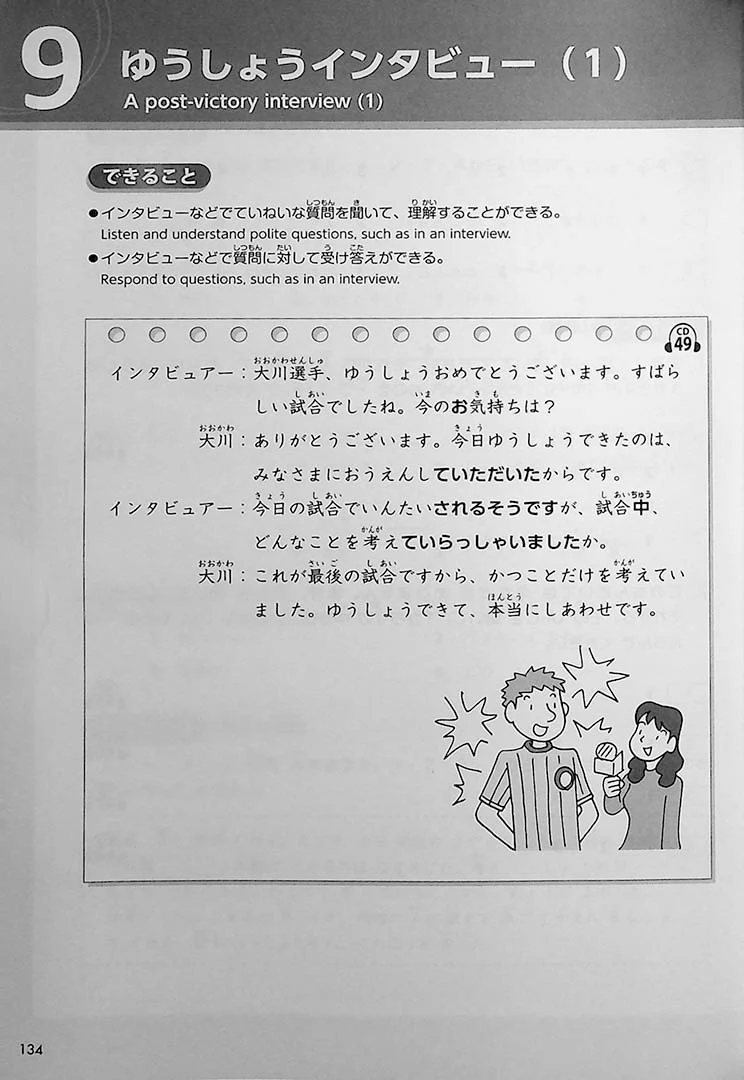 9
ゆうしょうインタビュー（1）
A post-victory interview (1)
できること
●インタビューなどでていねいな質問を聞いて、理解することができる。
Listen and understand polite questions, such as in an interview.
●インタビューなどで質問に対して受け答えができる。
Respond to questions, such as in an interview.
CD
49
インタビュアー：大川選手、ゆうしょうおめでとうございます。すばら
しい試合でしたね。今のお気持ちは？
大川：ありがとうございます。今日ゆうしょうできたのは、
みなさまにおうえんしていただいたからです。
インタビュアー：今日の試合でいんたいされるそうですが、試合中、
どんなことを考えていらっしゃいましたか。
大川：これが最後の試合ですから、かつことだけを考えてい
ました。ゆうしょうできて、本当にしあわせです。
134